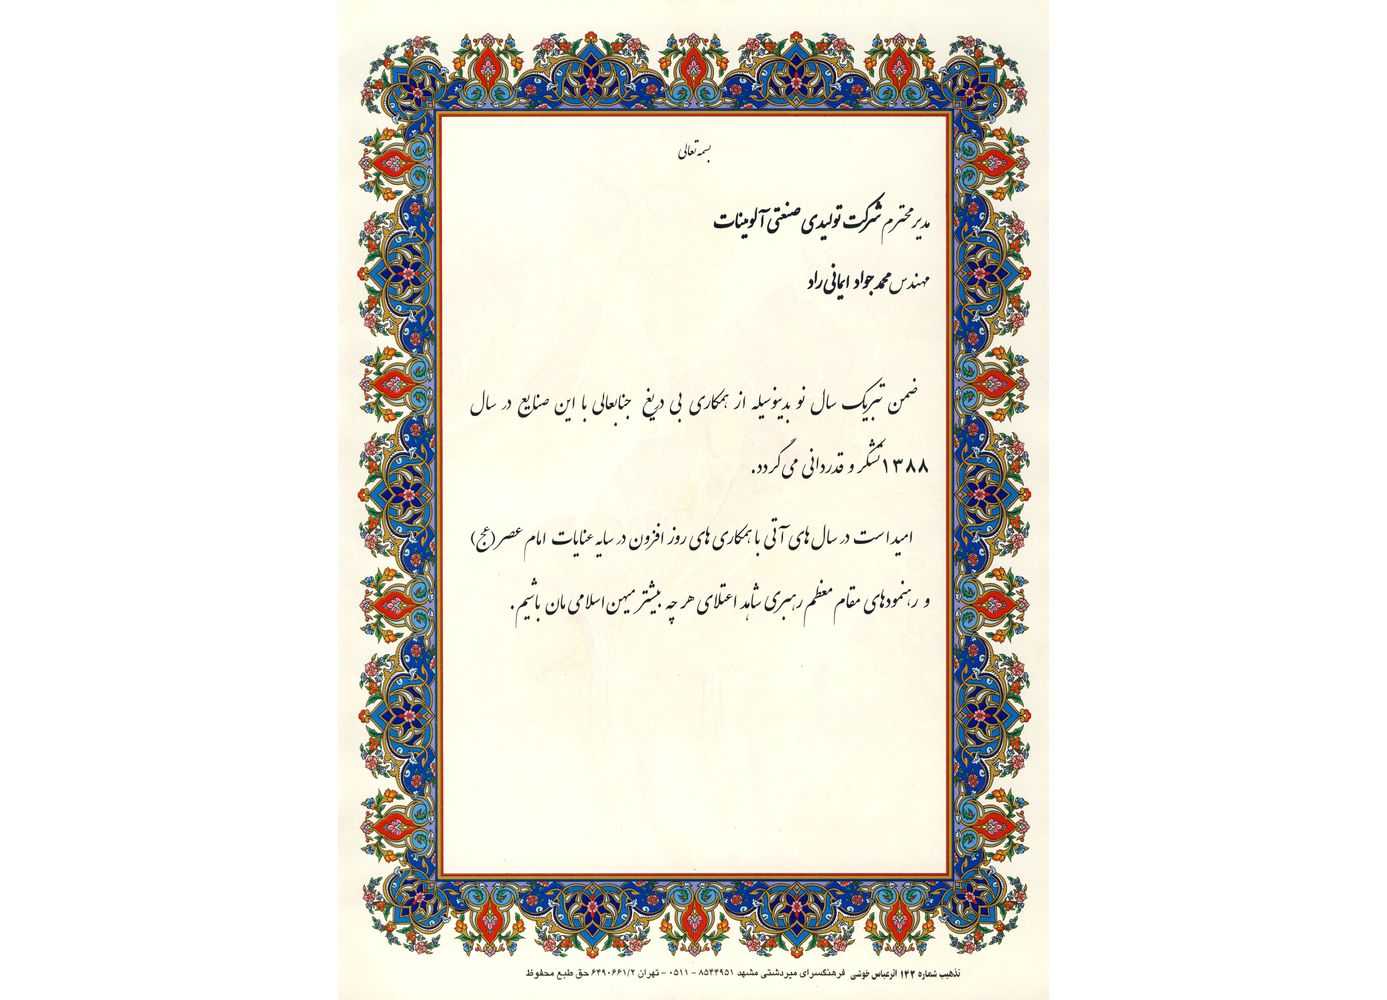 بسمه تعالی
مدیر محترم شرکت تولیدی صنعتی آلومینات
مهندس محمد جواد ایمانی راد
ضمن تبریک سال نو بدینوسیله از همکاری بی دریغ جنابعالی با این صنایع در سال
۱۳۸۸ تشکر و قدردانی می گردد.
امید است در سال های آتی با همکاری های روز افزون در سایه عنایات امام عصر (عج)
و رهنمودهای مقام معظم رهبری شاهد اعتلای هر چه بیشتر میهن اسلامی مان باشیم.
تذهیب شماره ۱۲۲ اثر عباس خوشی فرهنگسرای میردشتی مشهد ۸۵۴۴۹۵۱ - ۰۵۱۱ - تهران ۶۴۹۰۶۶۱/۲ حق طبع محفوظ